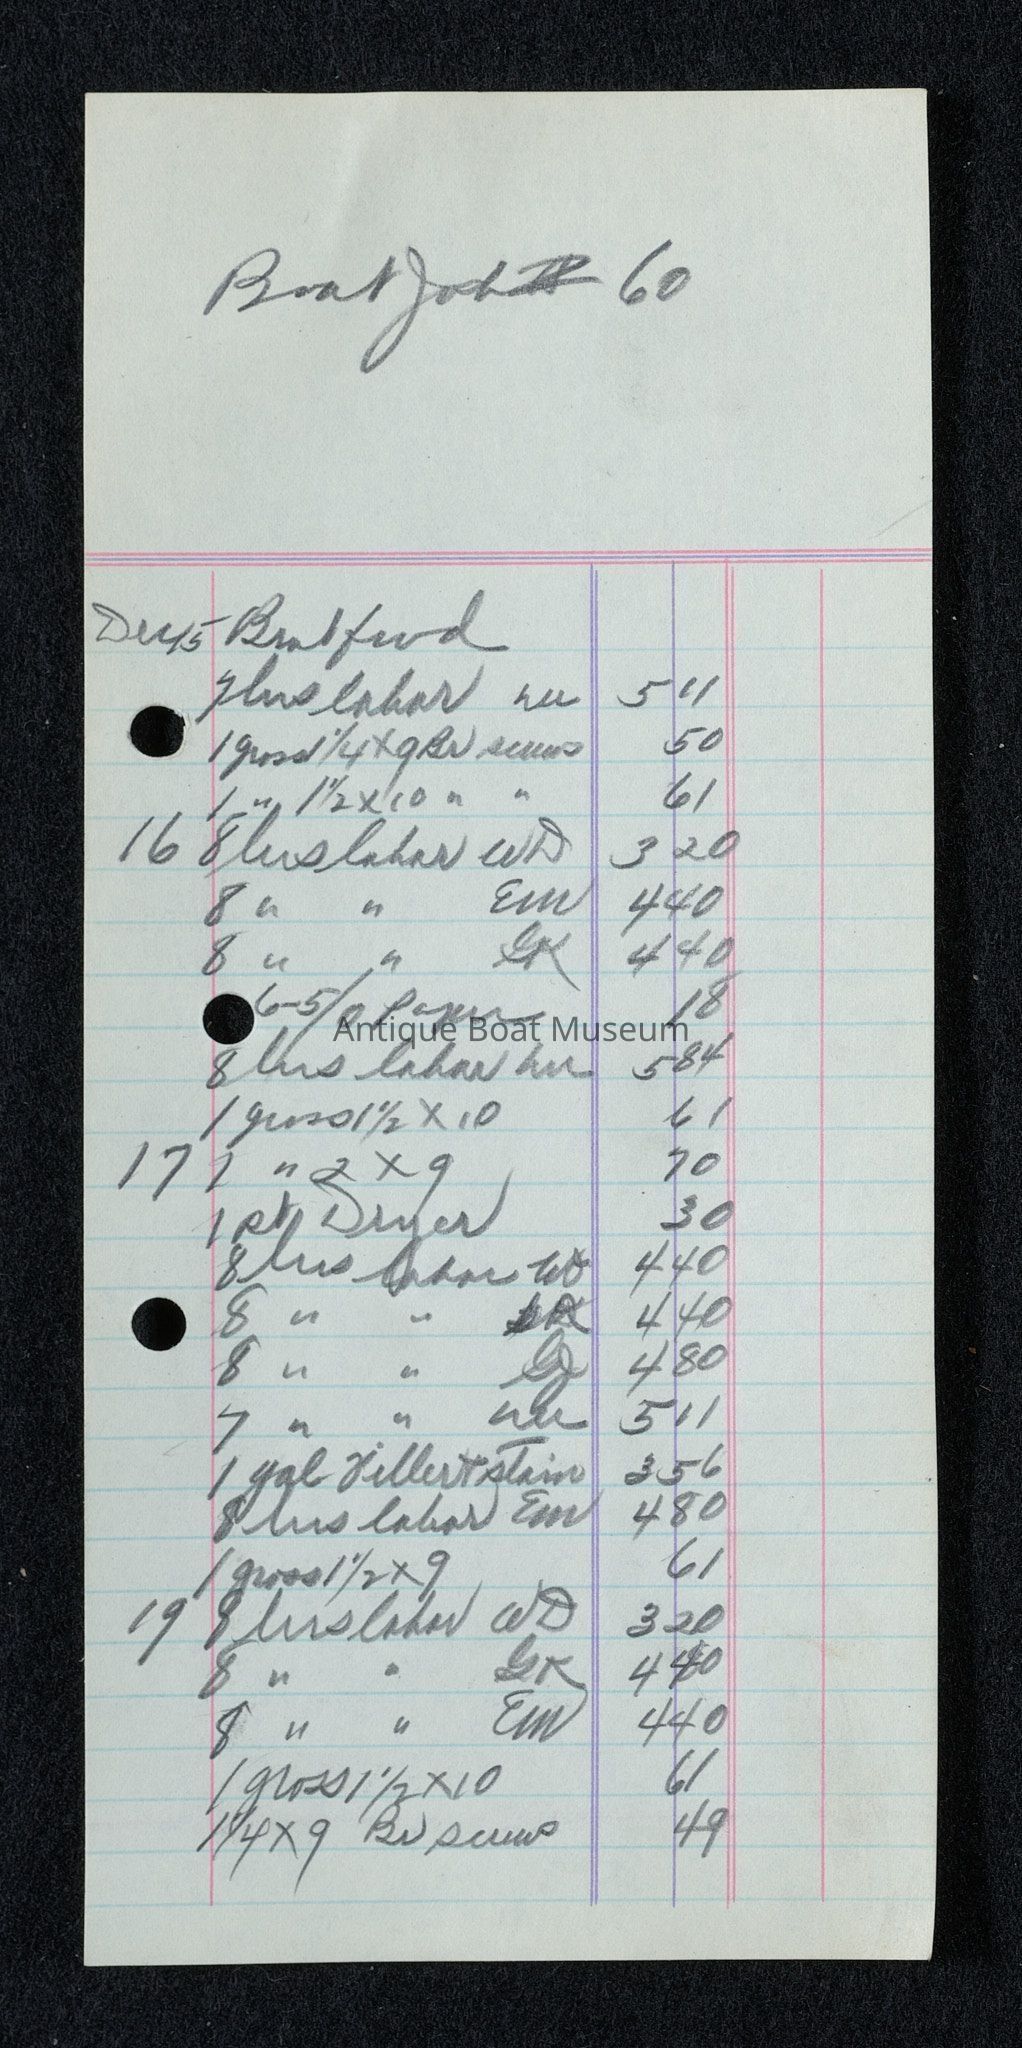 Boat Job # 60
Dec 15 Boat fwd
7 hrs labor 5 11
1 gross 1 1/4 X 9 Br screws 50
1 " 1 1/2 X 10 " " 61
16 8 hrs labor WD 3 20
8 " " EM 4 40
8 " " GK 4 40
6-5/0 Paper 18
Antique Boat Museum
8 hrs labor 5 84
1 gross 1 1/2 X 10 61
17 1 " 2 X 9 70
1 pt Dryer 30
8 hrs labor WD 4 40
8 " " GK 4 40
8 " " GJ 4 80
7 " " 5 11
1 gal Filler + stain 3 56
8 hrs labor EM 4 80
1 gross 1 1/2 X 9 61
19 8 hrs labor WD 3 20
8 " " GK 4 40
8 " " EM 4 40
1 gross 1 1/2 X 10 61
1 1/4 X 9 Br screws 49